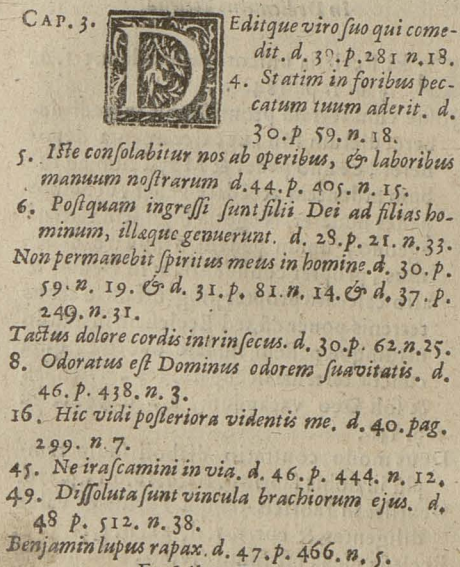 CAP. 3. DEditque viro ſuo qui come-
dit. d. 39. p. 281 n. 18.
4. Statim in foribus pec-
catum tuum aderit. d.
30. p 59. n. 18.
5. Iſte conſolabitur nos ab operibus, & laboribus
manuum noſtrarum d. 44. p. 405. n. 15.
6. Poſtquam ingreſſi ſunt filii Dei ad filias ho-
minum, illæque genuerunt. d. 28. p. 21. n. 33.
Non permanebit ſpiritus meus in homine. d. 30. p.
59. n. 19. & d. 31. p. 81. n. 14. & d. 37. p.
249. n. 31.
Tactus dolore cordis intrinſecus. d. 30. p. 62. n. 25.
8. Odoratus eſt Dominus odorem ſuavitatis. d.
46. p. 438. n. 3.
16. Hic vidi poſteriora videntis me. d. 40. pag.
299. n. 7.
45. Ne iraſcamini in via. d. 46. p. 444. n. 12.
49. Diſſoluta ſunt vincula brachiorum ejus. d.
48 p. 512. n. 38.
Benjamin lupus rapax. d. 47. p. 466. n. 5.